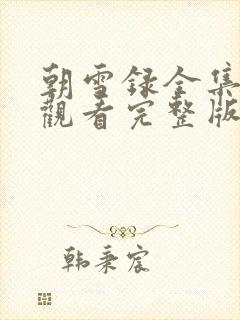 朝雪录全集
觀看完整版
韩秉宸